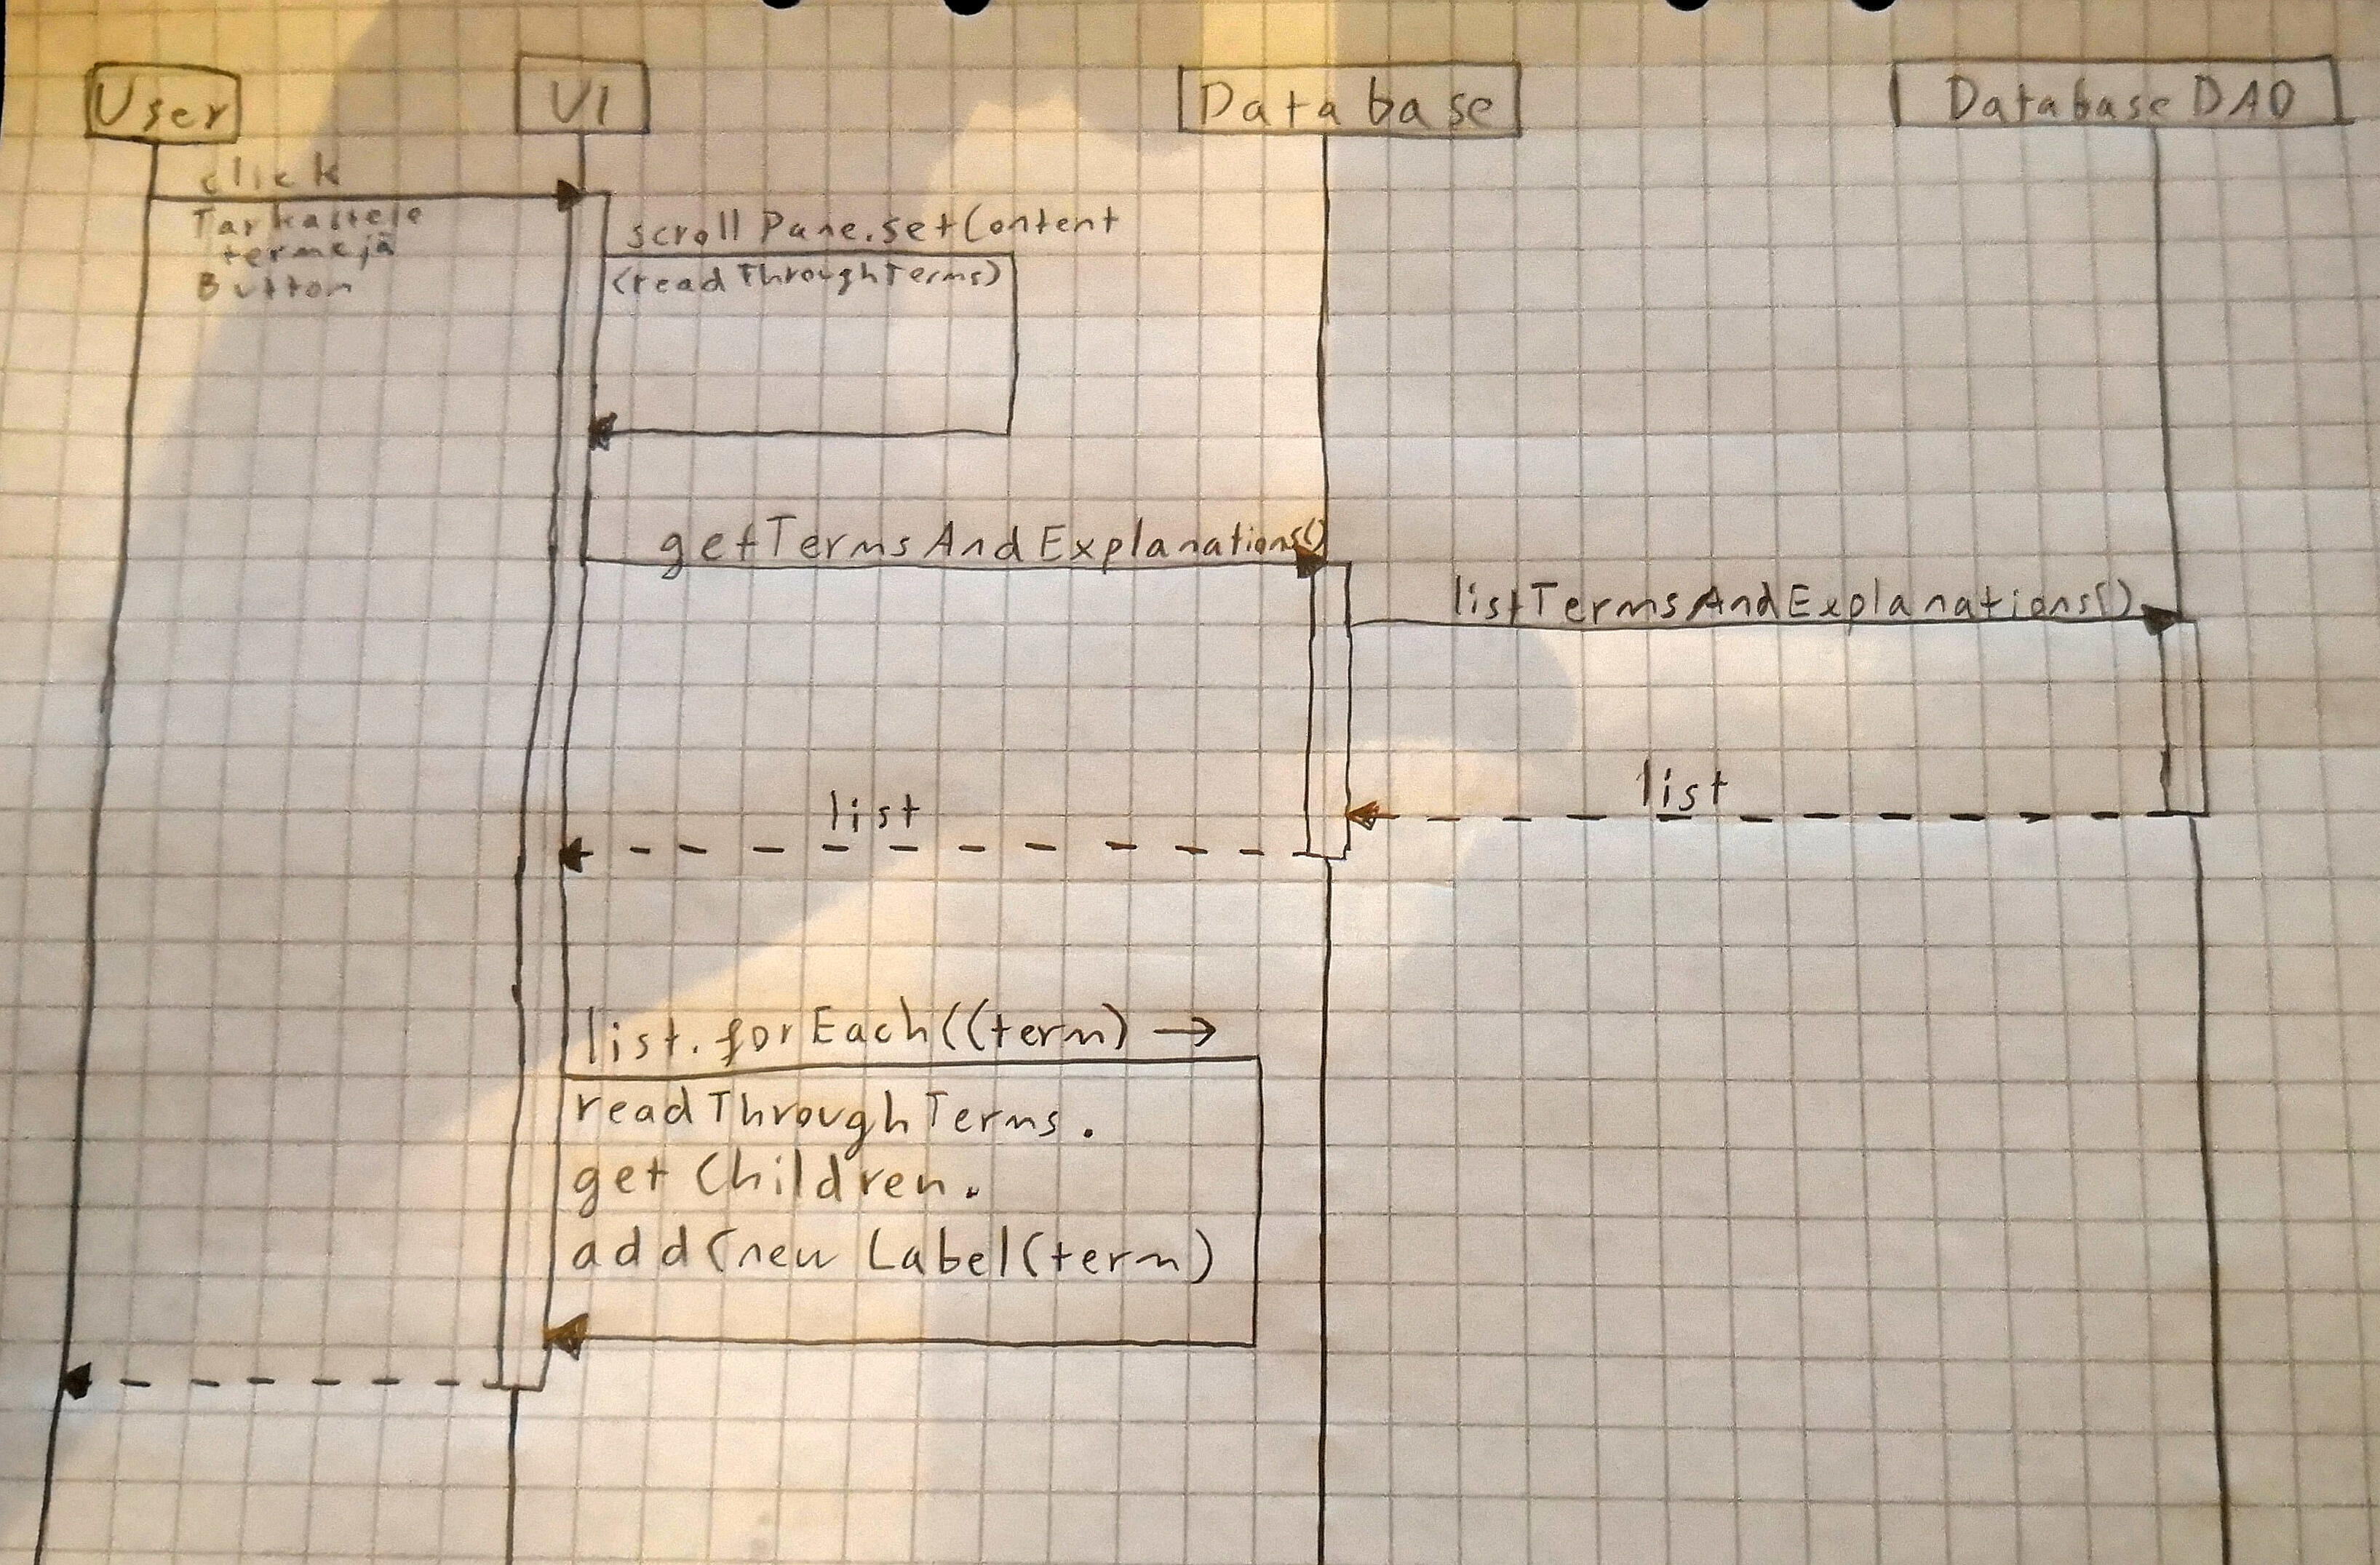 User
UI
Database
Database DAO
click
Tarkastele
termejä
Button
scrollPane.setContent
(readThroughTerms)
getTermsAndExplanations()
listTermsAndExplanations()
list
list
list.forEach((term) →
readThroughTerms.
getChildren.
add(new Label(term)